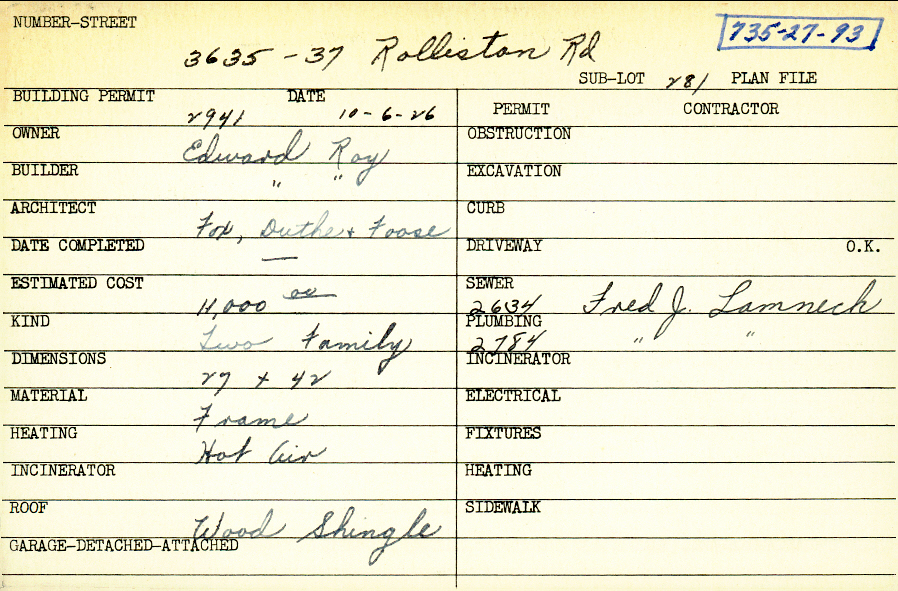 NUMBER-STREET
735-27-93
3635-37 Rolliston Rd
SUB-LOT 281 PLAN FILE
BUILDING PERMIT 2941 DATE 10-6-26
PERMIT CONTRACTOR
OWNER Edward Roy
OBSTRUCTION
BUILDER " "
EXCAVATION
ARCHITECT Fox, Duthe + Foose
CURB
DATE COMPLETED —
DRIVEWAY O.K.
ESTIMATED COST 11,000 00
SEWER 2634 Fred J. Lamneck
KIND Two Family
PLUMBING 2784 " "
DIMENSIONS 27 + 42
INCINERATOR
MATERIAL Frame
ELECTRICAL
HEATING Hot Air
FIXTURES
INCINERATOR
HEATING
ROOF Wood Shingle
SIDEWALK
GARAGE-DETACHED-ATTACHED